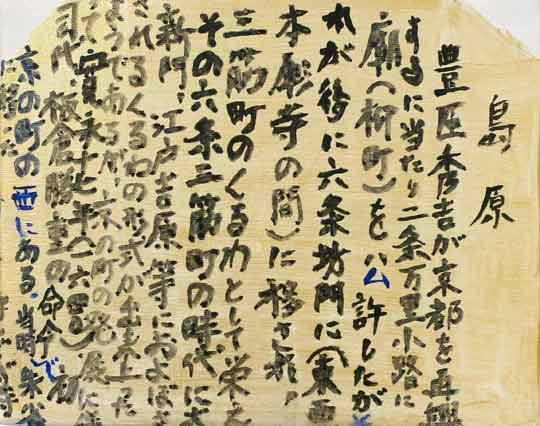 島原
豊臣秀吉が京都を再興
するに当たり二条万里小路に
廓(柳町)を公許したが
れが後に六条坊門に(東西
本願寺の間)に移され、
三筋町のくるわとして栄え
その六条三筋町の時代に
新門、江戸吉原等におよぼさ
されるくるわの形式が出来上った
ようであるが、京の町の発展に
って寛永十七年(一六四〇)
司代、板倉勝重の命令で
京の町の西にある、当時、朱雀